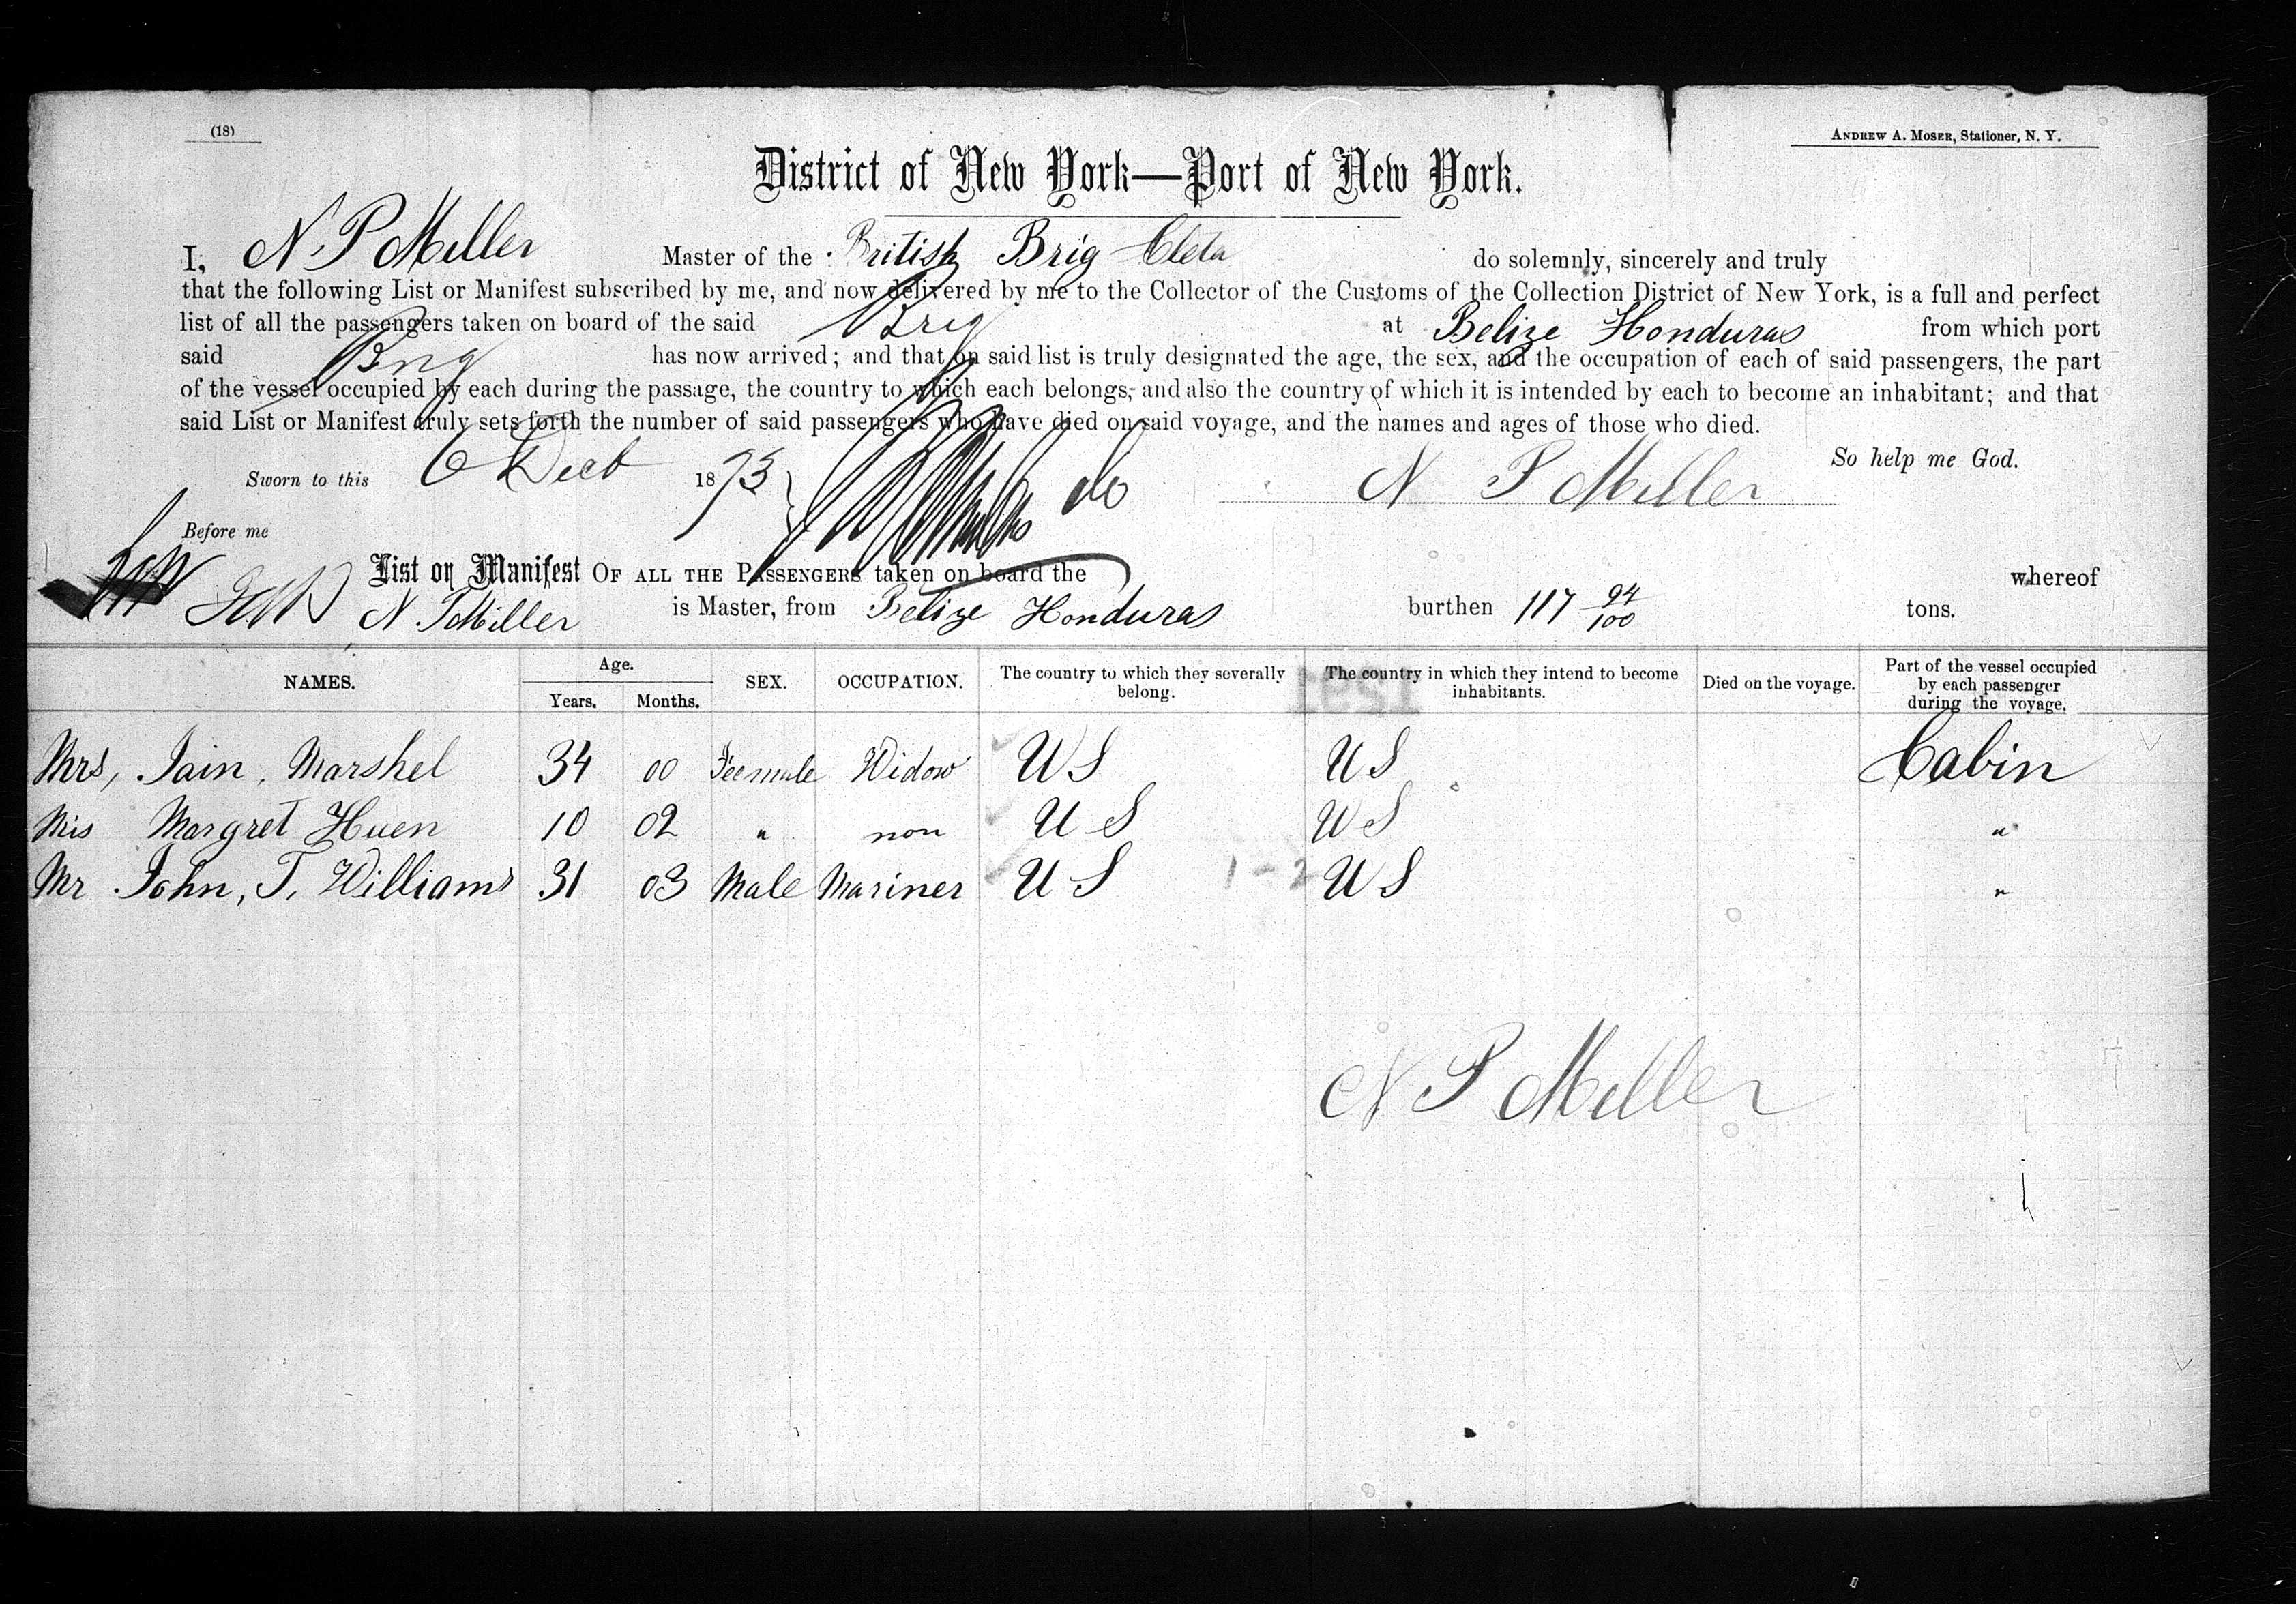 (18)
ANDREW A. MOSER, Stationer, N. Y.
District of New York—Port of New York.
I, N. P Miller Master of the British Brig Cleta do solemnly, sincerely and truly
that the following List or Manifest subscribed by me, and now delivered by me to the Collector of the Customs of the Collection District of New York, is a full and perfect
list of all the passengers taken on board of the said Brig at Belize Honduras from which port
said Brig has now arrived; and that on said list is truly designated the age, the sex, and the occupation of each of said passengers, the part
of the vessel occupied by each during the passage, the country to which each belongs, and also the country of which it is intended by each to become an inhabitant; and that
said List or Manifest truly sets forth the number of said passengers who have died on said voyage, and the names and ages of those who died.
So help me God.
Sworn to this 6 Dect 1873 N P Miller
Before me
List or Manifest OF ALL THE PASSENGERS taken on board the whereof
N. P Miller is Master, from Belize Honduras burthen 117 94/100 tons.
NAMES. Age. Years. Months. SEX. OCCUPATION. The country to which they severally belong. The country in which they intend to become inhabitants. Died on the voyage. Part of the vessel occupied by each passenger during the voyage.
Mrs, Jain, Marshel 34 00 Feemale Widow U S U S Cabin
Mis Margret Huen 10 02 " non U S U S "
Mr John, T, Williams 31 03 Male Mariner U S 1-2 U S "
N P Miller